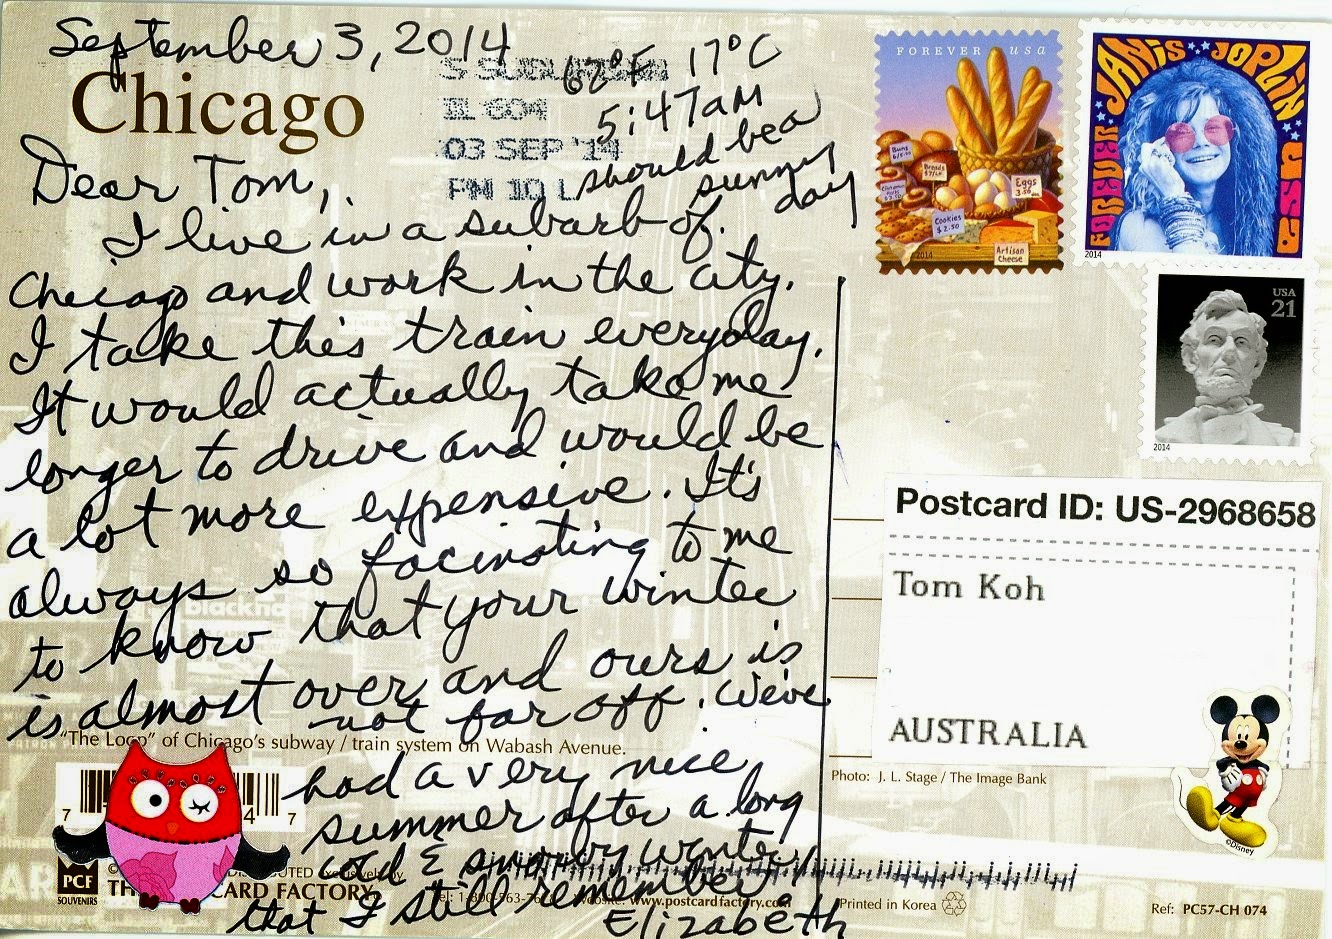 September 3, 2014
Chicago
S SUBURBAN
62°F 17°C
5:47am
should be a
sunny
day
03 SEP '14
PM 10 L
Dear Tom,
I live in a suburb of
Chicago and work in the city.
I take this train everyday.
It would actually take me
longer to drive and would be
a lot more expensive. It's
always so facinating to me
to know that your winter
is almost over and ours is
not far off. We've
had a very nice
summer after a long
cold & snowy winter
that I still remember
Elizabeth
"The Loop" of Chicago's subway / train system on Wabash Avenue.
7 4 7
PCF
SOUVENIRS
CARD FACTORY
www.postcardfactory.com
Printed in Korea
Ref: PC57-CH 074
FOREVER usa
Buns
Breads
Eggs
Cookies
$2.50
Artisan
Cheese
2014
JANIS JOPLIN
FOREVER
USA
2014
USA
21
2014
Postcard ID: US-2968658
Tom Koh
AUSTRALIA
Photo: J. L. Stage / The Image Bank
©Disney